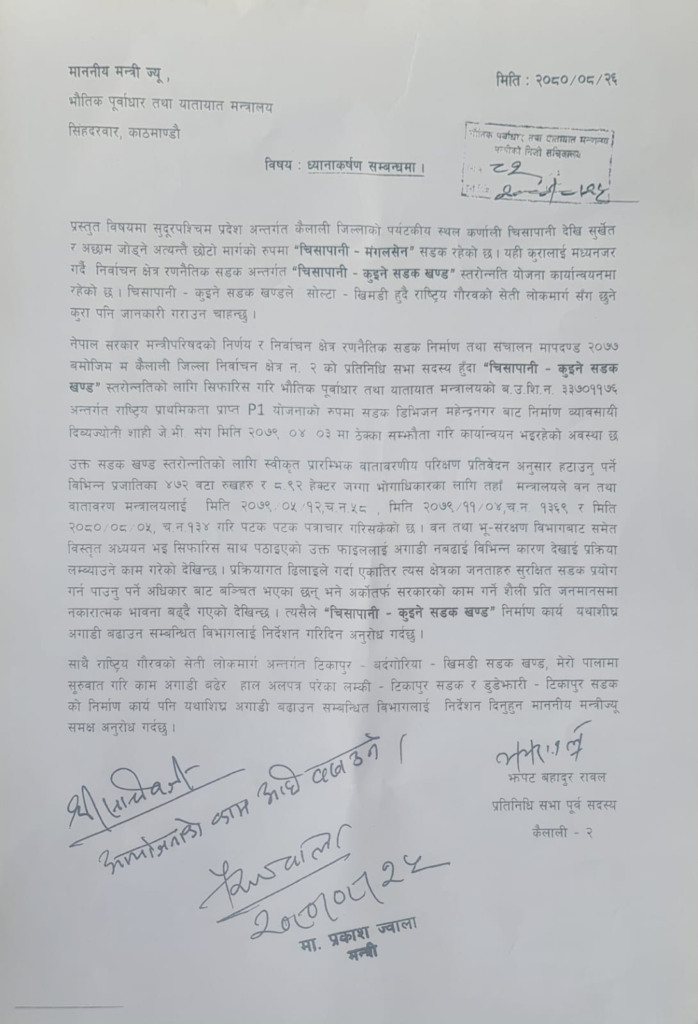 माननीय मन्त्री ज्यू,
मिति : २०८०/०८/२६
भौतिक पूर्वाधार तथा यातायात मन्त्रालय
सिंहदरवार, काठमाण्डौ
भौतिक पूर्वाधार तथा यातायात मन्त्रालय
विषय : ध्यानाकर्षण सम्बन्धमा ।
प्रस्तुत विषयमा सुदूरपश्चिम प्रदेश अन्तर्गत कैलाली जिल्लाको पर्यटकीय स्थल कर्णाली चिसापानी देखि सुर्खेत
र अछाम जोड्ने अत्यन्तै छोटो मार्गको रुपमा "चिसापानी - मंगलसेन" सडक रहेको छ । यही कुरालाई मध्यनजर
गर्दै निर्वाचन क्षेत्र रणनैतिक सडक अन्तर्गत "चिसापानी - कुइने सडक खण्ड" स्तरोन्नति योजना कार्यान्वयनमा
रहेको छ । चिसापानी - कुइने सडक खण्डले सोल्टा - खिमडी हुदै राष्ट्रिय गौरवको सेती लोकमार्ग संग छुने
कुरा पनि जानकारी गराउन चाहन्छु ।
नेपाल सरकार मन्त्रीपरिषदको निर्णय र निर्वाचन क्षेत्र रणनैतिक सडक निर्माण तथा संचालन मापदण्ड २०७७
बमोजिम म कैलाली जिल्ला निर्वाचन क्षेत्र न. २ को प्रतिनिधि सभा सदस्य हुँदा "चिसापानी - कुइने सडक
खण्ड" स्तरोन्नतिको लागि सिफारिस गरि भौतिक पूर्वाधार तथा यातायात मन्त्रालयको ब.उ.शि.न. ३३७०११७६
अन्तर्गत राष्ट्रिय प्राथमिकता प्राप्त P1 योजनाको रुपमा सडक डिभिजन महेन्द्रनगर बाट निर्माण ब्यावसायी
दिब्यज्योती शाही जे.भी. संग मिति २०७९, ०४ ०३ मा ठेक्का सम्झौता गरि कार्यान्वयन भइरहेको अवस्था छ
उक्त सडक खण्ड स्तरोन्नतिको लागि स्वीकृत प्रारम्भिक बातावरणीय परिक्षण प्रतिवेदन अनुसार हटाउनु पर्ने
बिभिन्न प्रजातिका ४७२ वटा रुखहरु र ८.९२ हेक्टर जग्गा भोगाधिकारका लागि तहाँ मन्त्रालयले वन तथा
वातावरण मन्त्रालयलाई मिति २०७९/०५/१२,च.न.५८ , मिति २०७९/११/०४,च.न. १३६९ र मिति
२०८०/०८/०५, च.न.१३४ गरि पटक पटक पत्राचार गरिसकेको छ । वन तथा भू-संरक्षण विभागबाट समेत
विस्तृत अध्ययन भइ सिफारिस साथ पठाइएको उक्त फाइललाई अगाडी नबढाई विभिन्न कारण देखाई प्रक्रिया
लम्ब्याउने काम गरेको देखिन्छ । प्रक्रियागत ढिलाइले गर्दा एकातिर त्यस क्षेत्रका जनताहरु सुरक्षित सडक प्रयोग
गर्न पाउनु पर्ने अधिकार बाट बञ्चित भएका छन् भने अर्कोतर्फ सरकारको काम गर्ने शैली प्रति जनमानसमा
नकारात्मक भावना बढ्दै गएको देखिन्छ । त्यसैले "चिसापानी - कुइने सडक खण्ड" निर्माण कार्य यथाशीघ्र
अगाडी बढाउन सम्बन्धित विभागलाई निर्देशन गरिदिन अनुरोध गर्दछु ।
साथै राष्ट्रिय गौरवको सेती लोकमार्ग अन्तर्गत टिकापुर - बदंगोरिया - खिमडी सडक खण्ड, मेरो पालामा
सुरुवात गरि काम अगाडी बढेर हाल अलपत्र परेका लम्की - टिकापुर सडक र डुडेझारी - टिकापुर सडक
को निर्माण कार्य पनि यथाशिघ्र अगाडी बढाउन सम्बन्धित विभागलाई निर्देशन दिनुहुन माननीय मन्त्रीज्यू
समक्ष अनुरोध गर्दछु ।
झपट बहादुर रावल
प्रतिनिधि सभा पूर्व सदस्य
कैलाली - २
मा. प्रकाश ज्वाला
मन्त्री